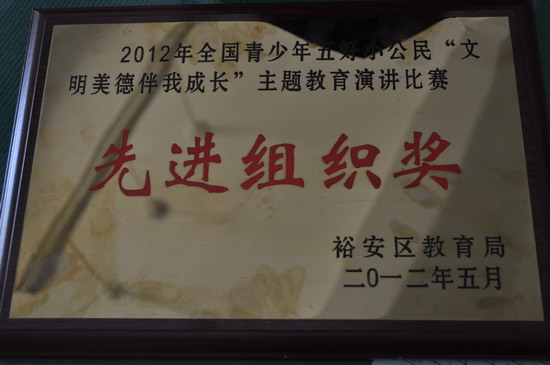 2012年全国青少年五好小公民“文
明美德伴我成长”主题教育演讲比赛
先进组织奖
裕安区教育局
二〇一二年五月